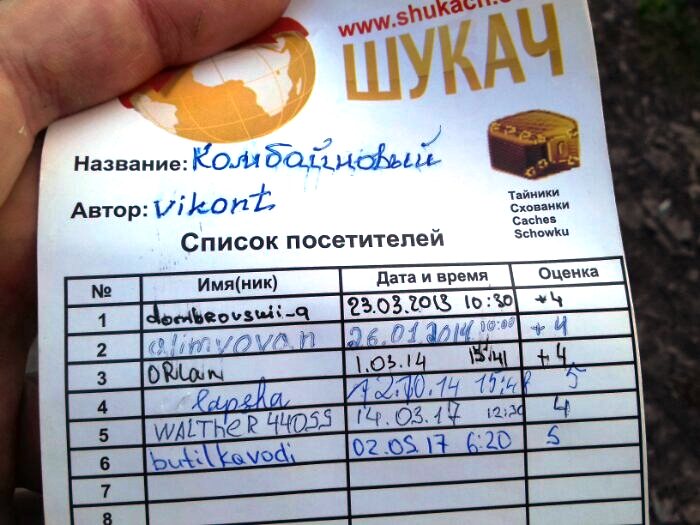 www.shukach.c
ШУКАЧ
Название: Комбайновый
Автор: vikont
Тайники
Схованки
Caches
Schowku
Список посетителей
№ Имя(ник) Дата и время Оценка
1 dombrovskii-a 23.03.2013 10:30 +4
2 alimvovan 26.01.2014 10:00 +4
3 ORLan 1.03.14 15:41 +4
4 Lapsha 12.10.14 15:48 5
5 WALTHER 440SS 14.03.17 12:30 4
6 butilkavodi 02.05.17 6:20 5
7
8